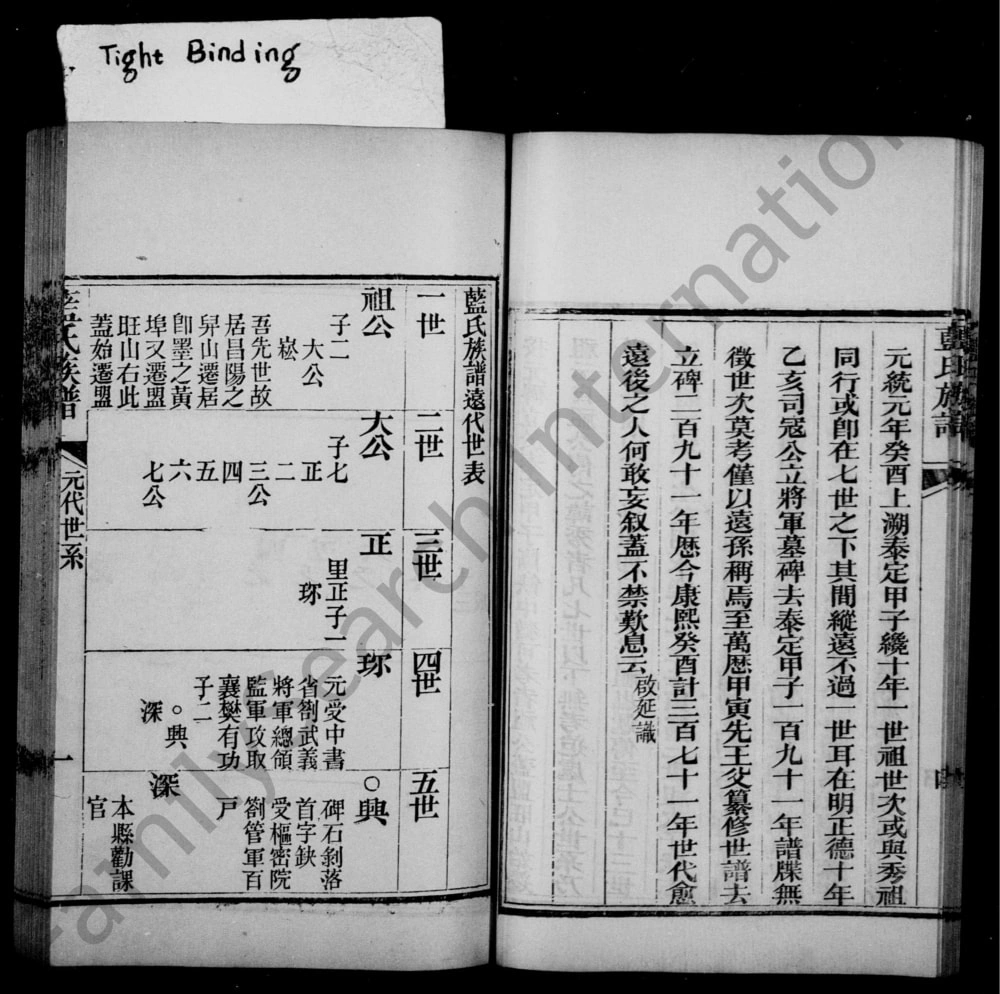 Tight Binding
藍氏族譜
元統元年癸酉上溯泰定甲子纔十年一世祖世次或與秀祖
同行或卽在七世之下其間縱遠不過一世耳在明正德十年
乙亥司寇公立將軍墓碑去泰定甲子一百九十一年譜牒無
徵世次莫考僅以遠孫稱焉至萬歷甲寅先王父纂修世譜去
立碑二百九十一年歷今康熙癸酉計三百七十一年世代愈
遠後之人何敢妄叙蓋不禁歎息云 啟延識
藍氏族譜遠代世表
一世
祖公
子二
大公
崧
吾先世故
居昌陽之
舁山遷居
卽墨之黃
埠又遷盟
旺山右此
蓋始遷盟
二世
大公
子七
正
二
三公
四
五
六
七公
三世
正
里正子一
珎
四世
珎
元受中書
省劄武義
將軍總領
監軍攻取
襄樊有功
子二
○興
深
五世
○興
碑石剝落
首字缺
受樞密院
劄管軍百
戸
深
本縣勸課
官
氏族譜
元代世系
一
FamilySearch International